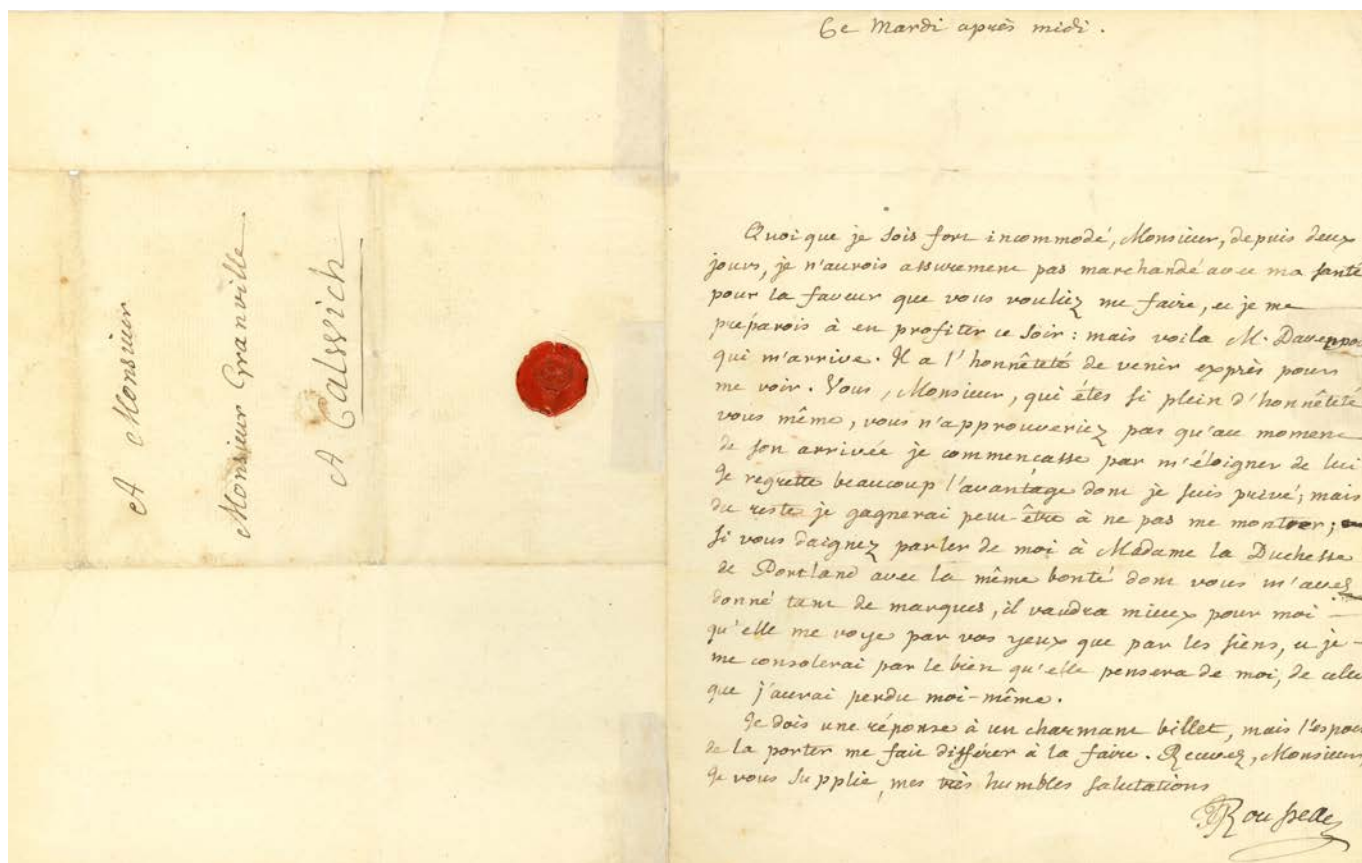 A Monsieur
Monsieur Granville
A Calswich
Ce Mardi après midi.
Quoique je sois fort incommodé, Monsieur, depuis deux
jours, je n'aurois assurement pas marchandé avec ma santé
pour la faveur que vous vouliez me faire, et je me
préparois à en profiter ce soir : mais voila M. Davenpo
qui m'arrive. Il a l'honnêteté de venir exprès pour
me voir. Vous, Monsieur, qui étes si plein d'honnêteté
vous même, vous n'approuveriez pas qu'au moment
de son arrivée je commencasse par m'éloigner de lui
Je regrette beaucoup l'avantage dont je suis privé; mais
du reste je gagnerai peut-être à ne pas me montrer;
si vous daignez parler de moi à Madame la Duchesse
de Portland avec la même bonté dont vous m'avez
donné tant de marques, il vaudra mieux pour moi —
qu'elle me voye par vos yeux que par les siens, et je -
me consolerai par le bien qu'elle pensera de moi, de celui
que j'aurai perdu moi-même.
Je dois une réponse à un charmant billet, mais l'espoir
de la porter me fait différer à la faire. Recevez, Monsieur,
je vous supplie, mes très humbles salutations
JJRousseau